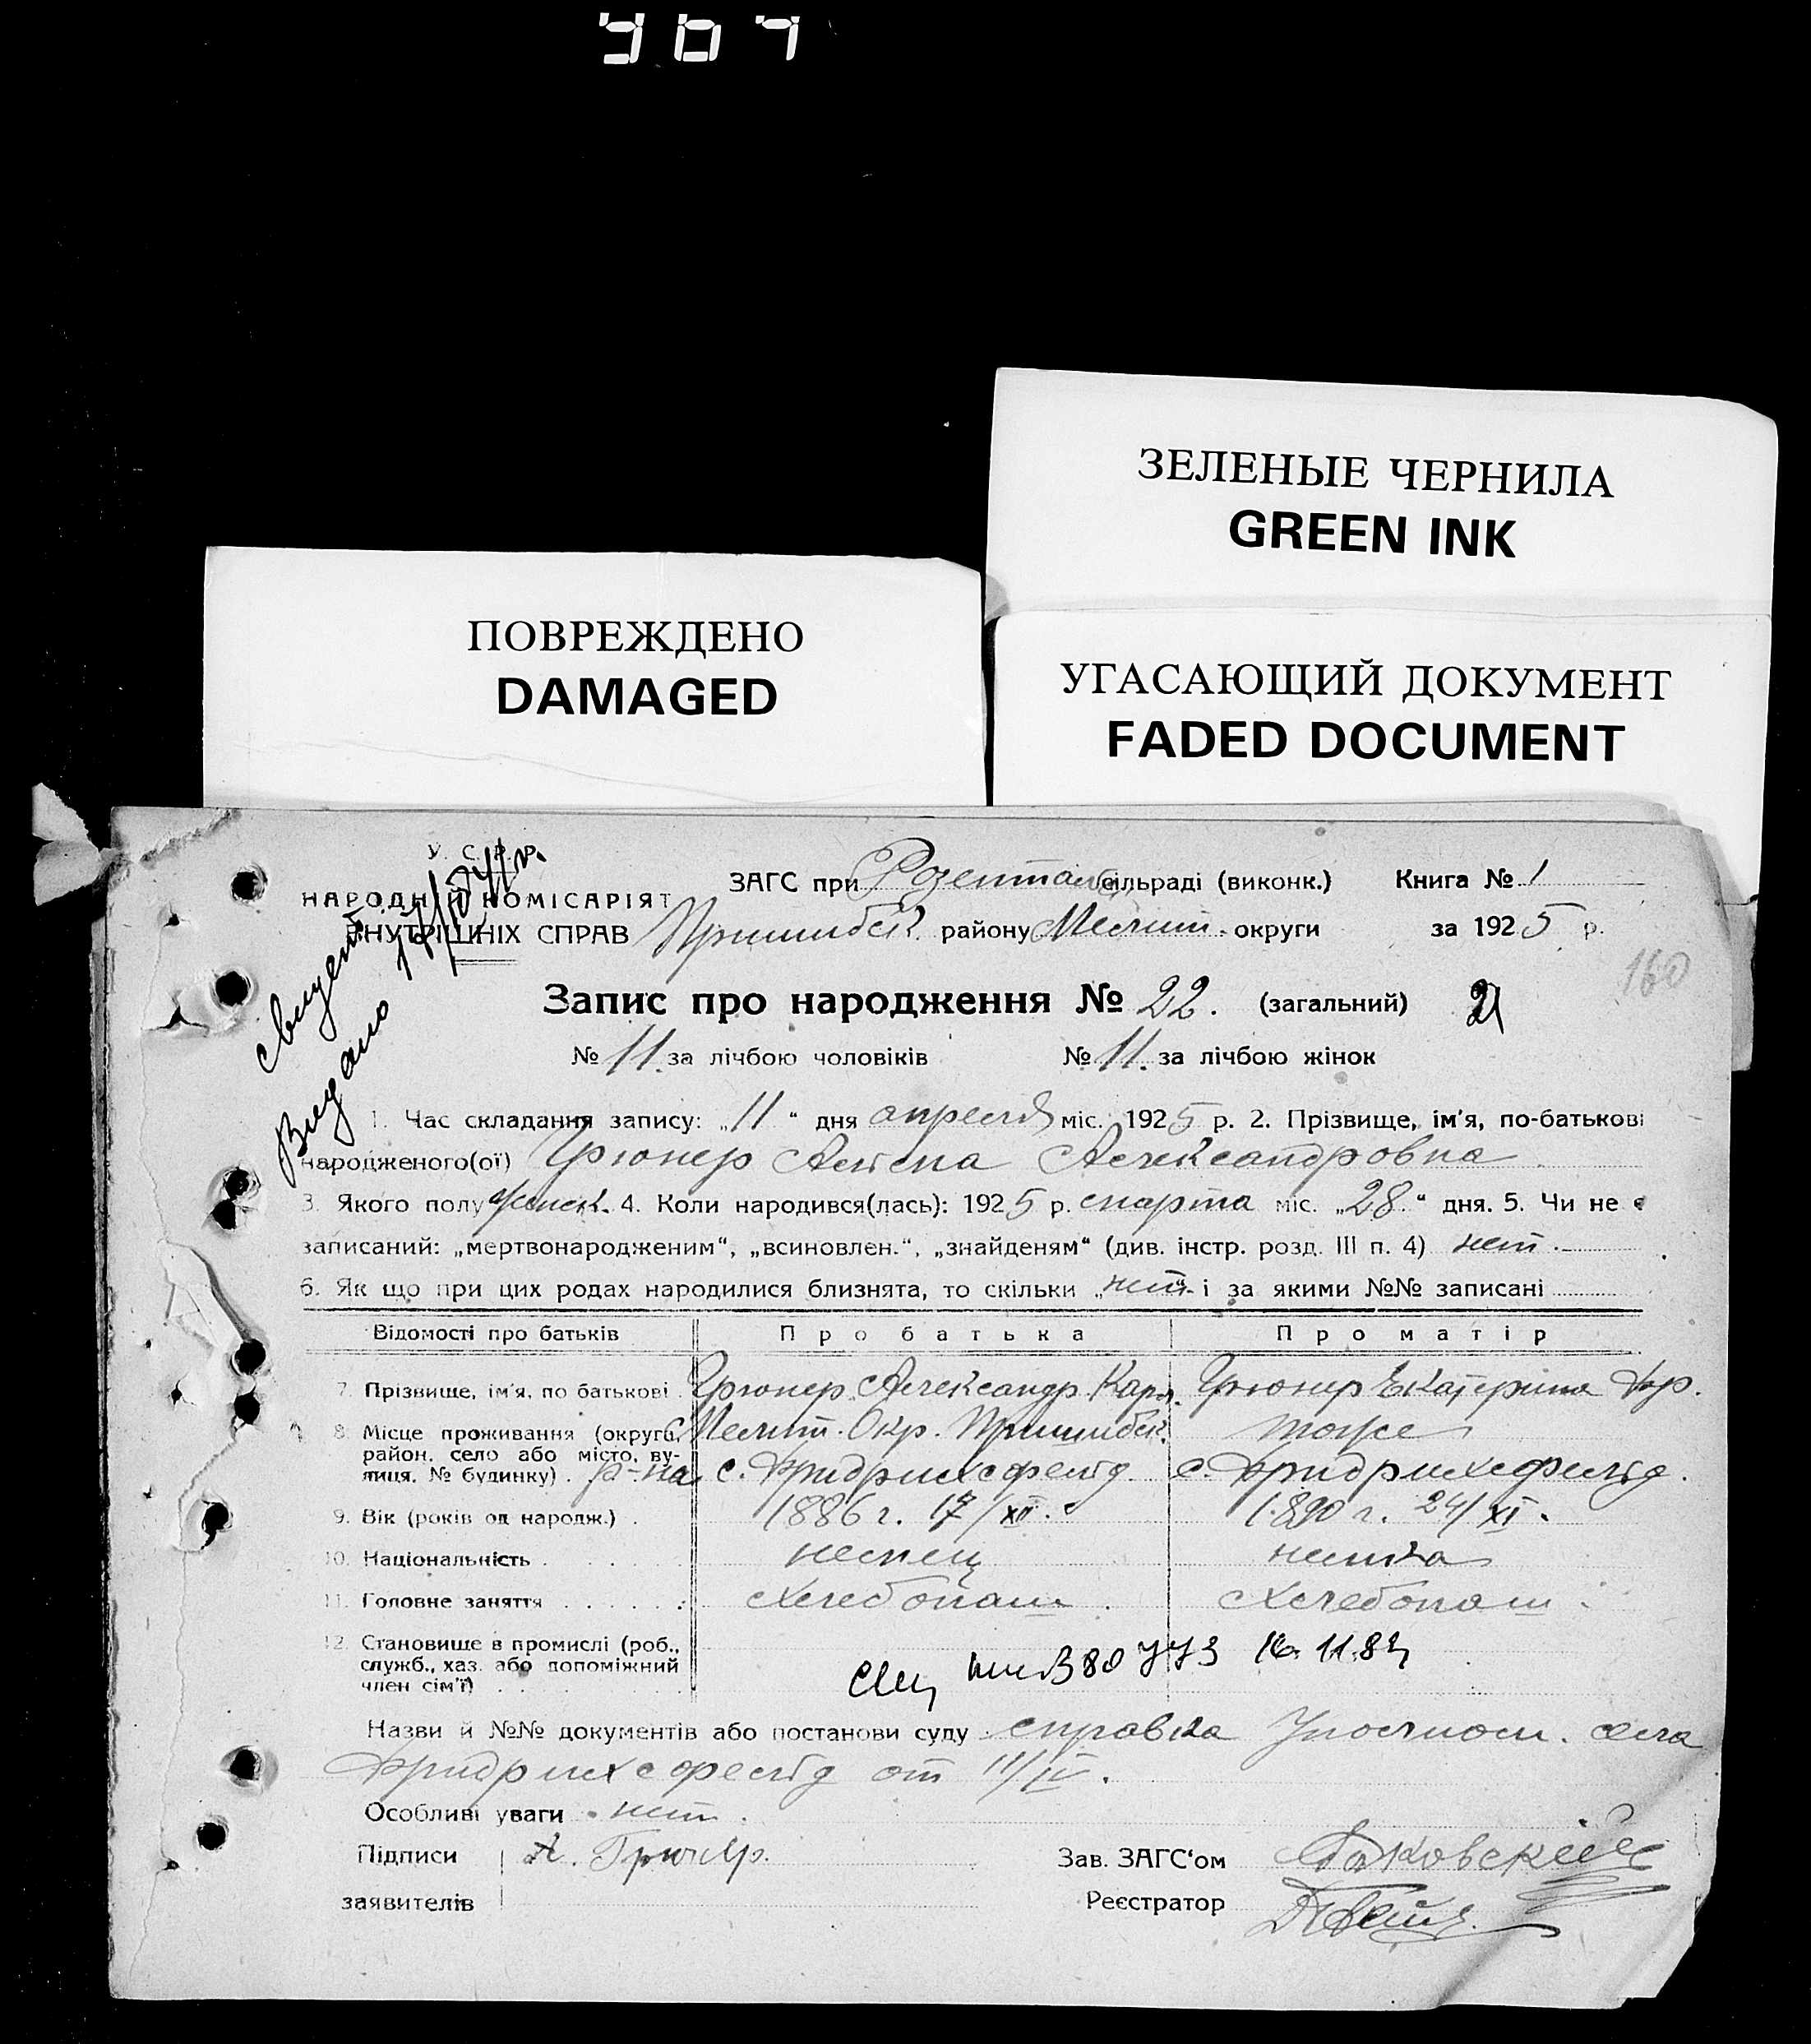 907
ЗЕЛЕНЫЕ ЧЕРНИЛА
GREEN INK
ПОВРЕЖДЕНО
DAMAGED
УГАСАЮЩИЙ ДОКУМЕНТ
FADED DOCUMENT
У. С. Р. Р.
НАРОДНІЙ КОМІСАРІЯТ
ВНУТРІШНІХ СПРАВ
свидет.
Видано
ЗАГС при Розентал сільраді (виконк.) Книга № 1
Пришибск. району Мелит. округи за 1925 р.
160
Запис про народження № 22. (загальний) 21
№ 11. за лічбою чоловіків № 11. за лічбою жінок
1. Час складання запису: „11“ дня апреля міс. 1925 р. 2. Прізвище, ім'я, по-батькові
народженого(ої) Грюнер Алма Александровна
3. Якого полу женск. 4. Коли народився(лась): 1925 р. марта міс. „28“ дня. 5. Чи не є
записаний: „мертвонародженим“, „всиновлен.“, „знайденям“ (див. інстр. розд. III п. 4) нет.
6. Як що при цих родах народилися близнята, то скільки „нет“ і за якими №№ записані
Відомості про батьків Про батька Про матір
7. Прізвище, ім'я, по батькові Грюнер Александр Карл. Грюнер Екатерина Фр.
8. Місце проживання (округа, Мелит. Окр. Пришибск. тоже
район, село або місто, ву-
лиця, № будинку) . р-на с. Фридрихсфельд с. Фридрихсфельд.
9. Вік (років од народж.) . 1886 г. 17/XII. 1890 г. 24/XI.
10. Національність немец немка
11. Головне заняття хлебопаш. хлебопаш.
12. Становище в промислі (роб.,
служб., хаз. або допоміжний
член сім'ї)
80773 16.11.83
Назви й №№ документів або постанови суду справка Уполном. села
Фридрихсфельд от 11/IV.
Особливі уваги нет.
Підписи А. Грюнер. Зав. ЗАГС'ом
заявителів Реєстратор